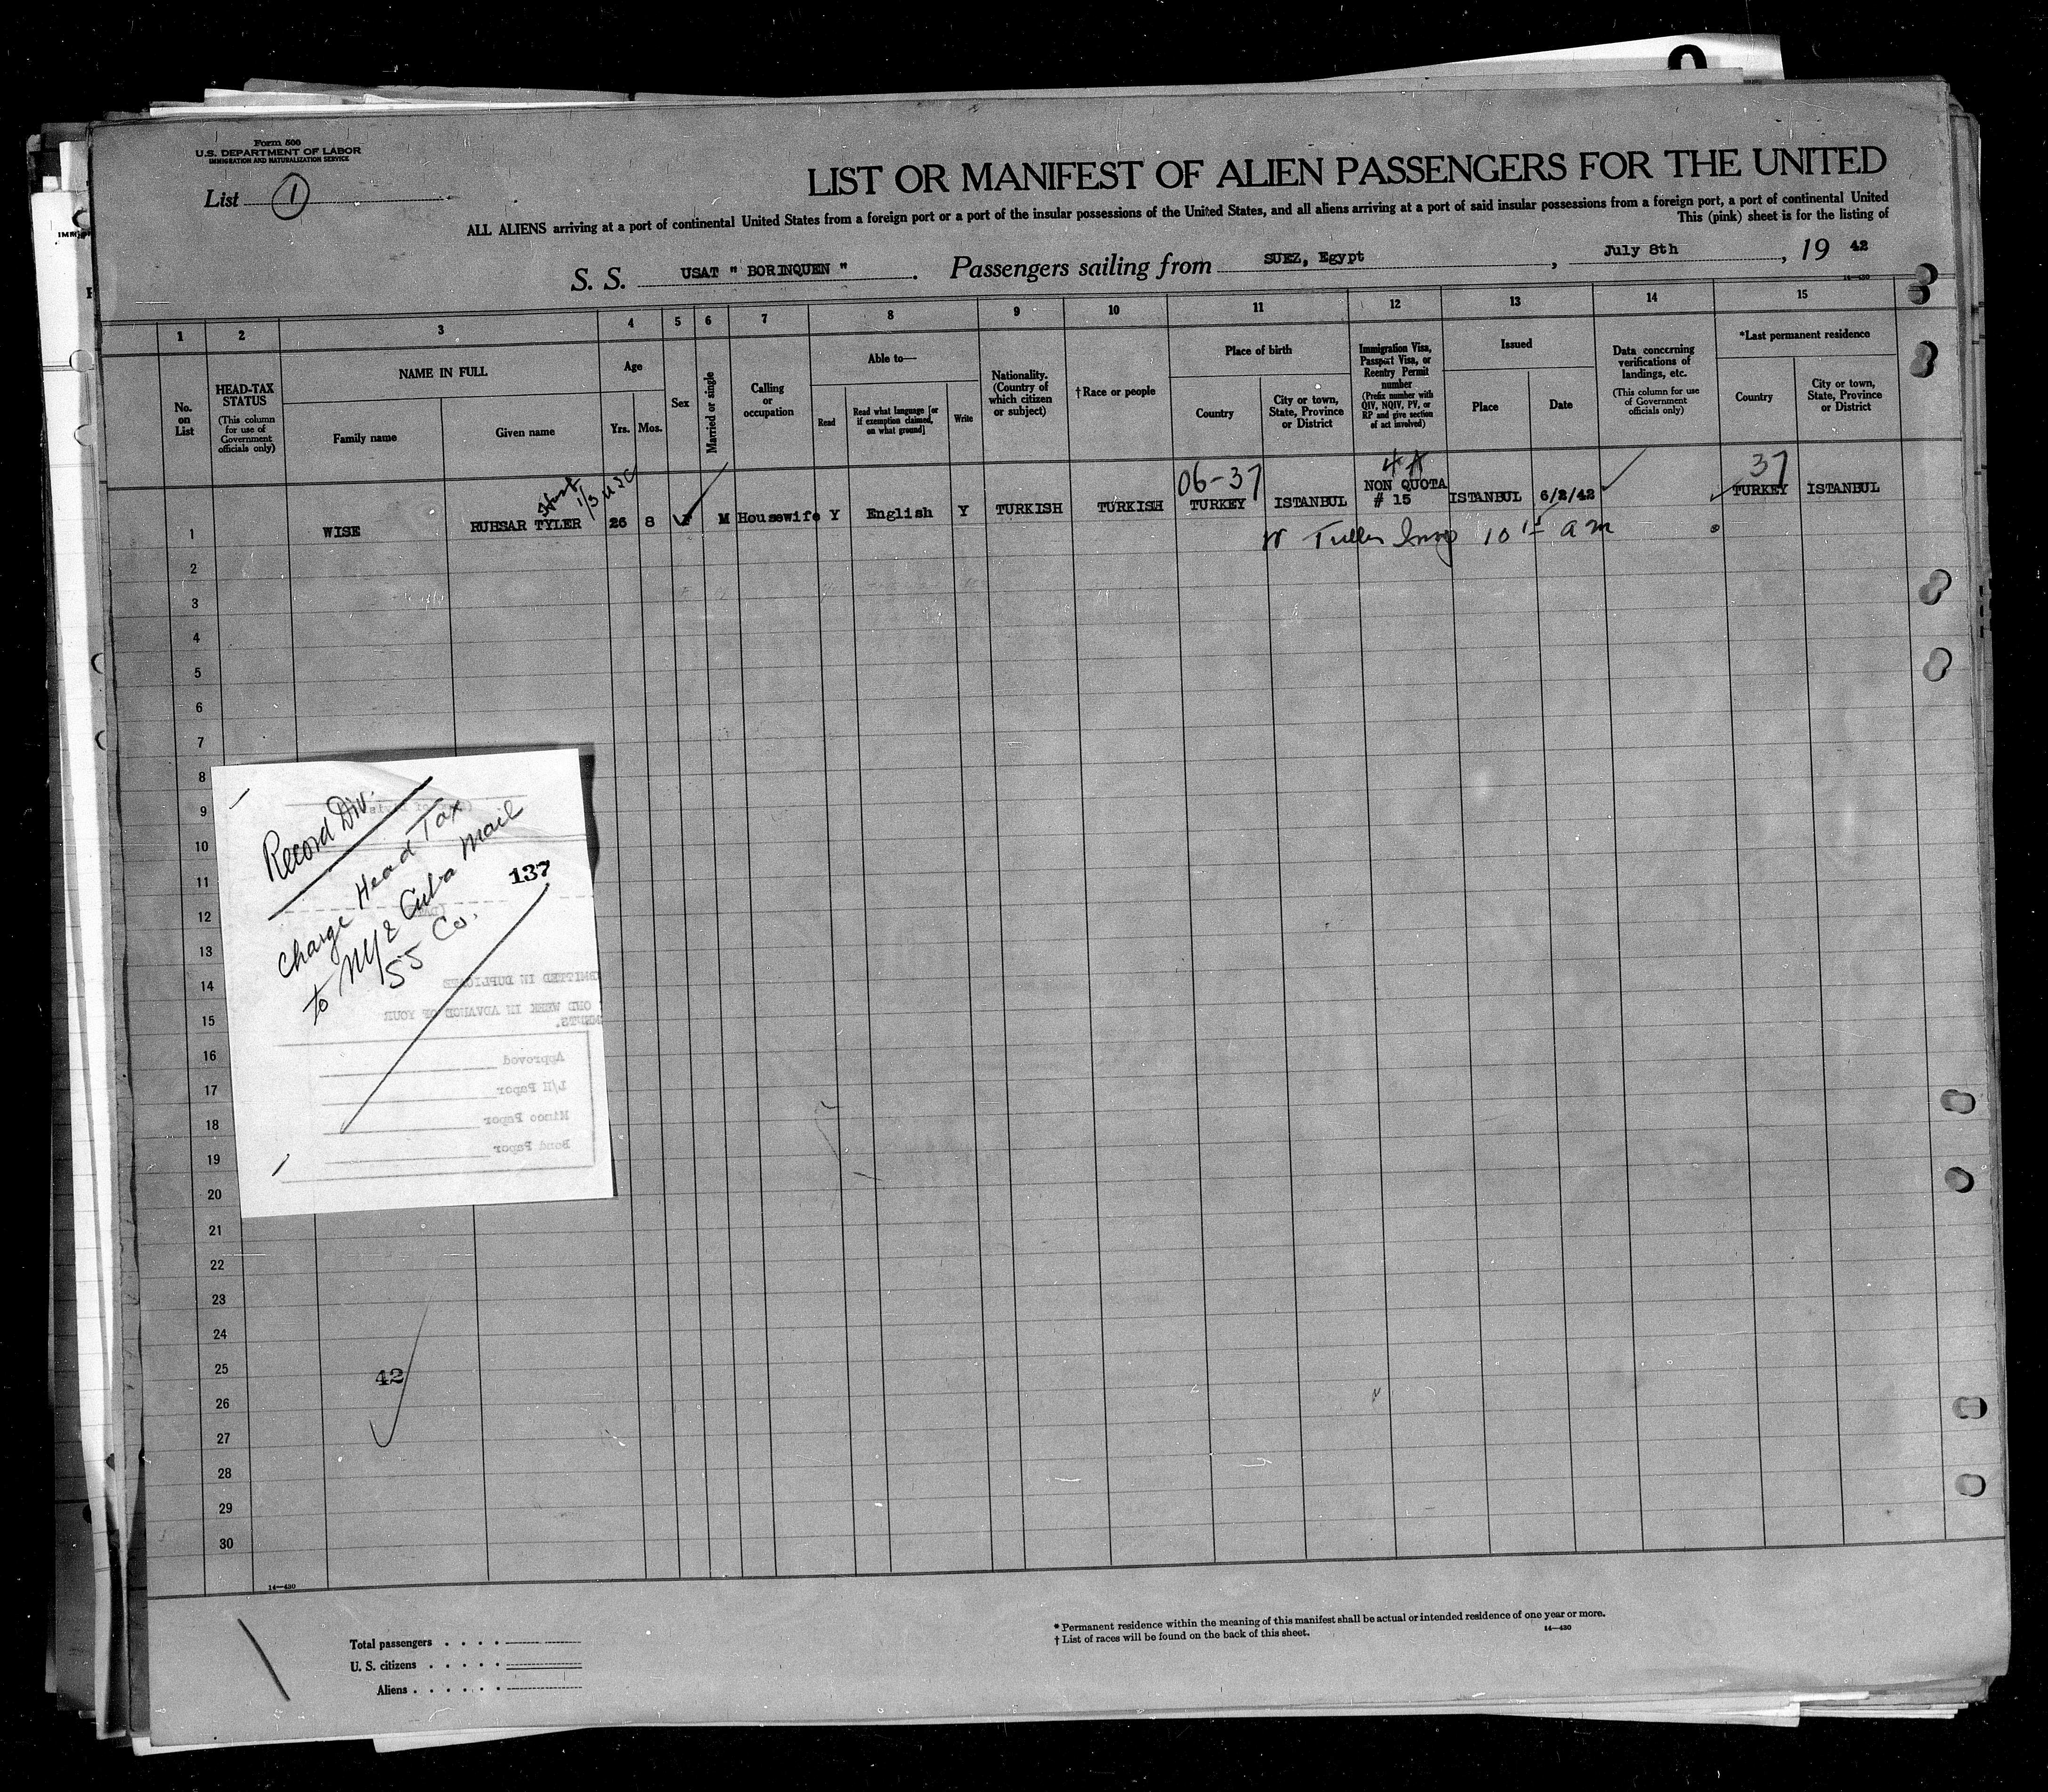 Form 500
U.S. DEPARTMENT OF LABOR
IMMIGRATION AND NATURALIZATION SERVICE
List 1
LIST OR MANIFEST OF ALIEN PASSENGERS FOR THE UNITED
ALL ALIENS arriving at a port of continental United States from a foreign port or a port of the insular possessions of the United States, and all aliens arriving at a port of said insular possessions from a foreign port, a port of continental United
This (pink) sheet is for the listing of
S. S. USAT " BORINQUEN " . Passengers sailing from SUEZ, Egypt , July 8th , 19 42
14—430
1 2 3 4 5 6 7 8 9 10 11 12 13 14 15
No. on List
HEAD-TAX STATUS
(This column for use of Government officials only)
NAME IN FULL
Family name
Given name
Age
Yrs.
Mos.
Sex
Married or single
Calling or occupation
Able to—
Read
Read what language [or if exemption claimed, on what ground]
Write
Nationality. (Country of which citizen or subject)
† Race or people
Place of birth
Country
City or town, State, Province or District
Immigration Visa, Passport Visa, or Reentry Permit number
(Prefix number with QIV, NQIV, PV, or RP and give section of act involved)
Issued
Place
Date
Data concerning verifications of landings, etc.
(This column for use of Government officials only)
*Last permanent residence
Country
City or town, State, Province or District
06-37
4A
37
1 WISE RUHSAR TYLER 26 8 F M Housewife Y English Y TURKISH TURKISH TURKEY ISTANBUL NON QUOTA # 15 ISTANBUL 6/2/42 TURKEY ISTANBUL
10 15 am
2
3
4
5
6
7
8
9
10
11
12
13
14
15
16
17
18
19
20
21
22
23
24
25
26
27
28
29
30
Record Div.
Charge Head Tax
to NY & Cuba Mail
55 Co.
137
MITTED IN DUPLICATE
ONE WEEK IN ADVANCE OF YOUR
Approved
L/H Paper
Mimeo Paper
Bond Paper
42
14—430
Total passengers
U. S. citizens
Aliens
* Permanent residence within the meaning of this manifest shall be actual or intended residence of one year or more.
† List of races will be found on the back of this sheet.
14—430